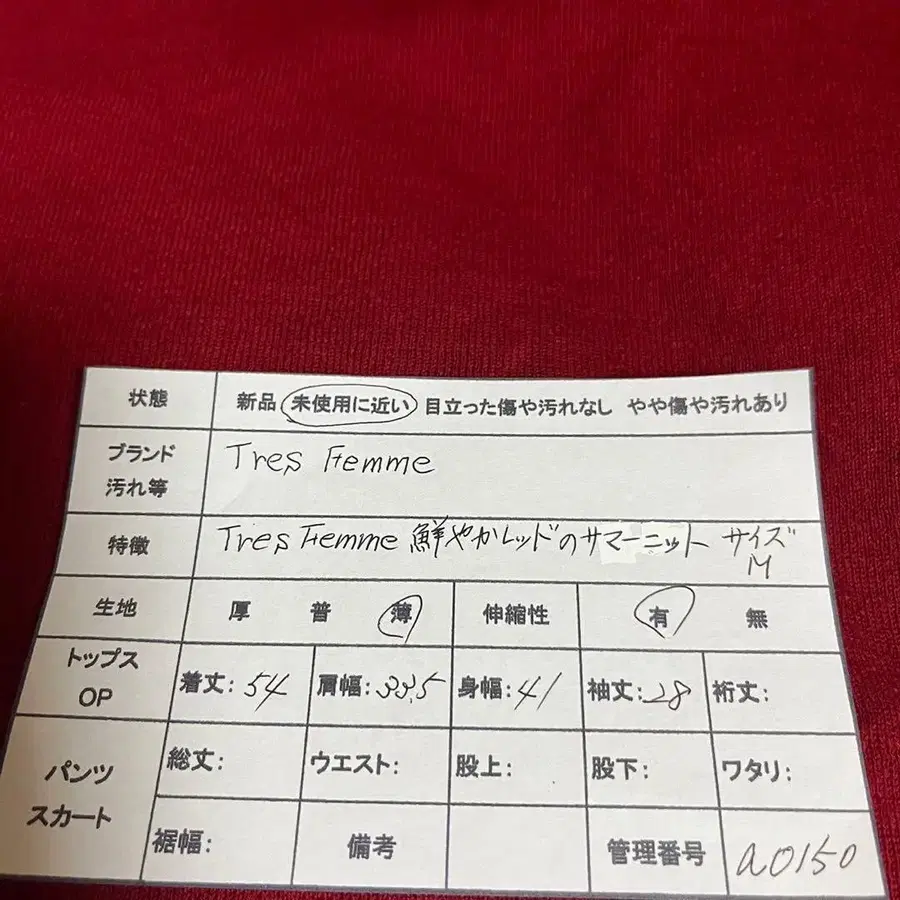 状態 新品 未使用に近い 目立った傷や汚れなし やや傷や汚れあり
ブランド
汚れ等 Tres Femme
特徴 Tres Femme 鮮やかレッドのサマーニット サイズ
M
生地 厚 普 薄 伸縮性 有 無
トップス
OP 着丈: 54 肩幅: 33.5 身幅: 41 袖丈: 28 裄丈:
パンツ
スカート 総丈: ウエスト: 股上: 股下: ワタリ:
裾幅: 備考 管理番号 a0150